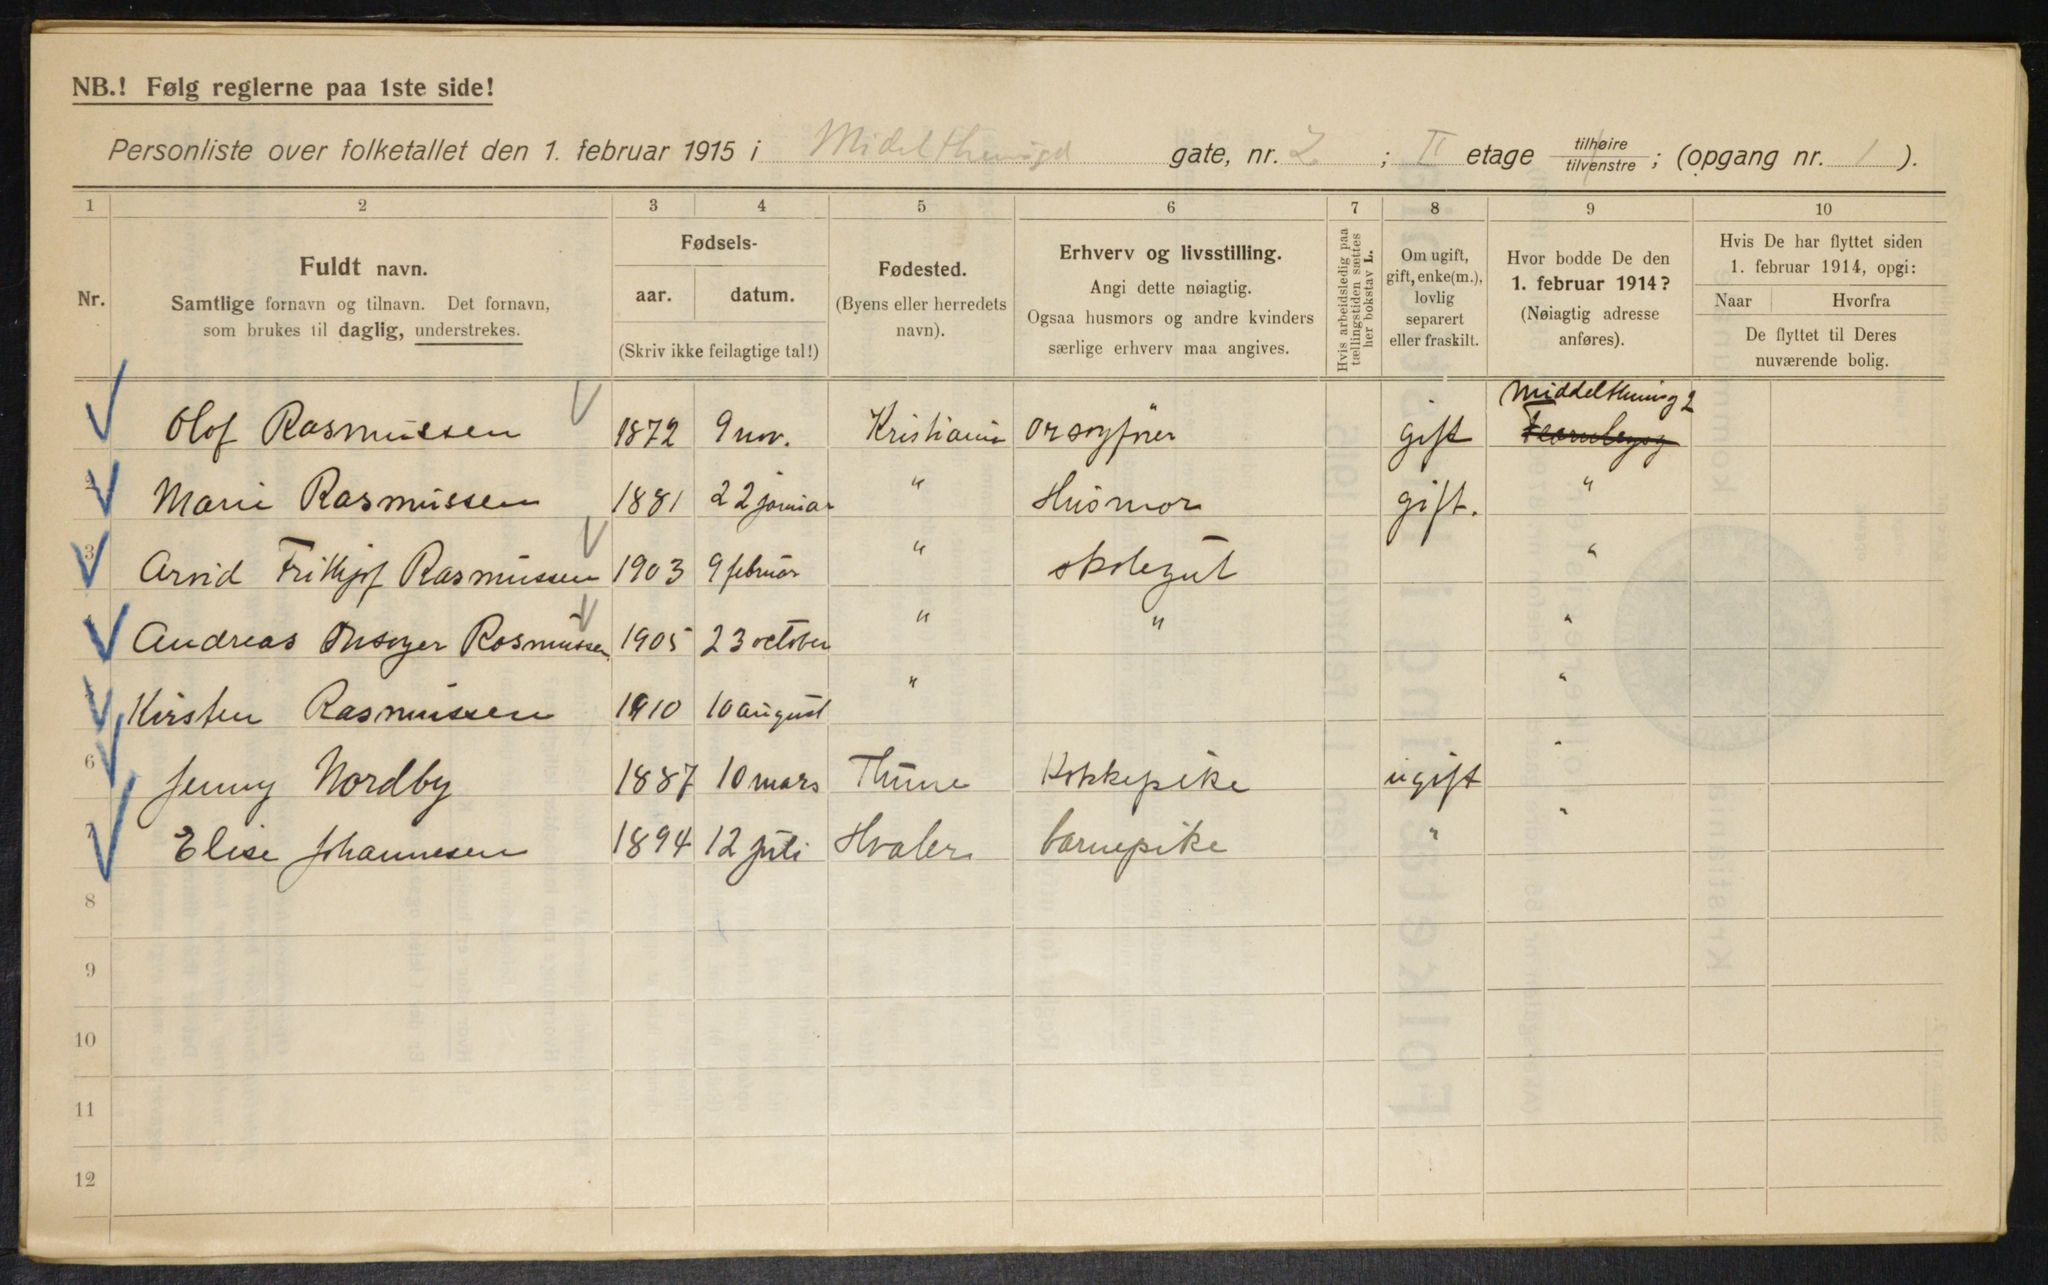 NB.! Følg reglerne paa 1ste side!
Personliste over folketallet den 1. februar 1915 i Midelthunsgd gate, nr. 2 ; II etage tilhøire / tilvenstre ; (opgang nr. 1 ).
1 2 3 4 5 6 7 8 9 10
Nr.
Fuldt navn.
Samtlige fornavn og tilnavn. Det fornavn,
som brukes til daglig, understrekes.
Fødsels-
aar. datum.
(Skriv ikke feilagtige tal!)
Fødested.
(Byens eller herredets
navn).
Erhverv og livsstilling.
Angi dette nøiagtig.
Ogsaa husmors og andre kvinders
særlige erhverv maa angives.
Hvis arbeidsledig paa
tællingstiden sættes
her bokstav L.
Om ugift,
gift, enke(m.),
lovlig
separert
eller fraskilt.
Hvor bodde De den
1. februar 1914?
(Nøiagtig adresse
anføres).
Hvis De har flyttet siden
1. februar 1914, opgi:
Naar Hvorfra
De flyttet til Deres
nuværende bolig.
Middelthunsg 2
Olof Rasmussen 1872 9 nov. Kristiania gift
2 Marie Rasmussen 1881 22 januar " Husmor gift. "
3 Arvid Frithjof Rasmussen 1903 9 februar " skolegut "
4 Andreas Onsøyer Rasmussen 1905 23 october " " "
Kirsten Rasmussen 1910 10 august " "
6 Jenny Nordby 1887 10 mars Thune Kokkepike ugift "
7 Elise Johannesen 1894 12 juli Hvaler barnepike " "
8
9
10
11
12